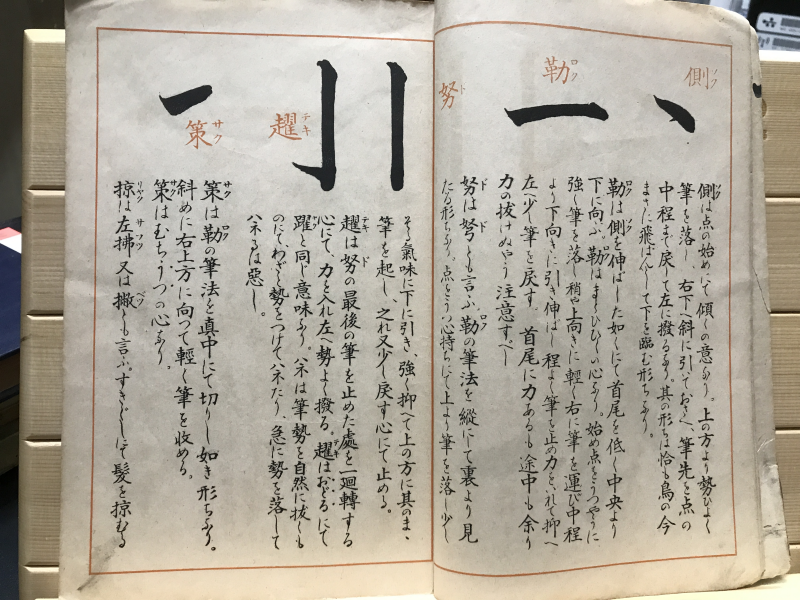 側
ソク
勒
ロク
努
ド
側は点の始めにて傾くの意なり。上の方より勢ひよく
筆を落し、右下へ斜に引いておさへ、筆先を点の
中程まで戻して左に撥るなり。其の形ちは恰も鳥の今
まさに飛ばんとして下を臨む形ちなり。
勒は側を伸ばした如くにて首尾を低く中央より
下に向ふ。勒はまくひひくの心なり。始め点をうつやうに
強く筆を落し稍や上向きに軽く右に筆を運び中程
より下向きに引き伸ばし程よく筆を止め力を入れて抑へ
左へ少し筆を戻す。首尾に力あるも途中も余り
力の抜けぬやう注意すべし
努は弩とも言ふ。勒の筆法を縦にして裏より見
たる形ちなり。点をうつ心持ちにて上より筆を落し少し
趯
テキ
策
サク
そり氣味に下に引き、強く抑へて上の方に其のまゝ
筆を起し、之れ又少し戻す心にて止める。
趯は努の最後の筆を止めた處を一廻轉する
心にて、力を入れ左へ勢よく撥る。趯はおどるにて
躍と同じ意味なり。ハネは筆勢を自然に抜くも
のにて、わざと勢をつけてハネたり、急に勢を落して
ハネるは惡し。
策は勒の筆法を真中にて切りし如き形ちなり。
斜めに右上方に向つて軽く筆を收める。
策はむちうつの心なり。
掠は左拂又は撇とも言ふ。すきぐしにて髪を掠むる